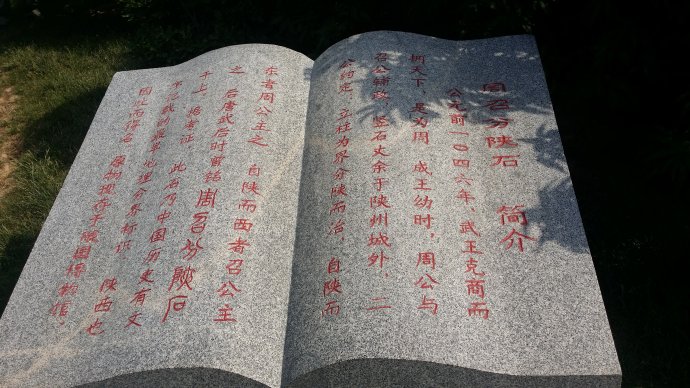 周召分陕石 简介
公元前一〇四六年、武王克商而
拥天下、是为周 成王幼时,周公与
召公辅政、竖石丈余于陕州城外,二
公约定,立柱为界分陕而治,自陕而
东者周公主之 自陕而西者召公主
之 后唐武后时重铭周召分陕石
于上,据考证,此石乃中国历史有文
字载的最早地理分界标识 陕西也
因此而得名 原物现存于虢国博物馆.